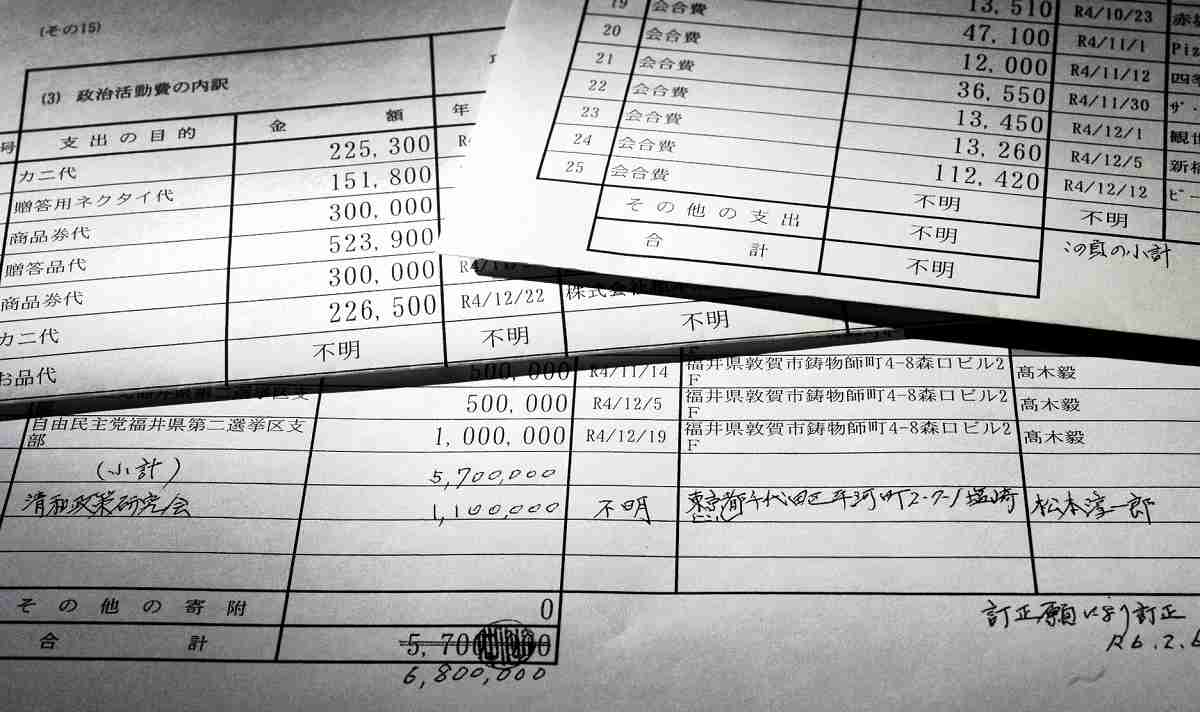 (その15)
(3) 政治活動費の内訳
支出の目的 金額 年
カニ代 225,300
贈答用ネクタイ代 151,800
商品券代 300,000
贈答品代 523,900
商品券代 300,000
カニ代 226,500 R4/12/22 株式会社
お品代 不明 不明 不明
19 会合費 13,510 R4/10/23 赤坂
20 会合費 47,100 R4/11/1 Piz
21 会合費 12,000 R4/11/12 四季
22 会合費 36,550 R4/11/30 ザ
23 会合費 13,450 R4/12/1 観世
24 会合費 13,260 R4/12/5 新橋
25 会合費 112,420 R4/12/12 ビー
不明 不明
その他の支出 不明
合計 不明
この頁の小計
500,000 R4/11/14 福井県敦賀市鋳物師町4-8森口ビル2F 髙木毅
500,000 R4/12/5 福井県敦賀市鋳物師町4-8森口ビル2F 髙木毅
自由民主党福井県第二選挙区支部 1,000,000 R4/12/19 福井県敦賀市鋳物師町4-8森口ビル2F 髙木毅
(小計) 5,700,000
清和政策研究会 1,100,000 不明 東京都千代田区平河町2-7-1塩崎ビル 松本淳一郎
その他の寄附 0
合計 5,700,000
6,800,000
訂正願により訂正
R6.2.6